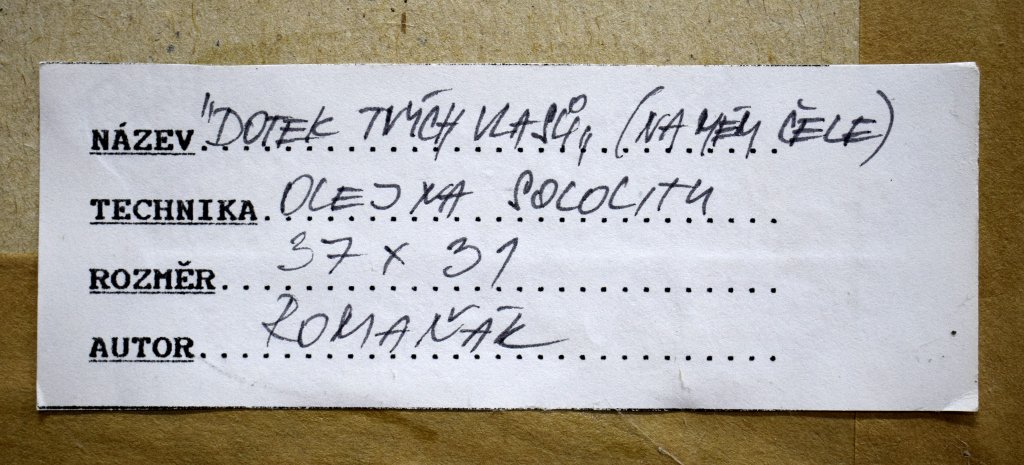 NÁZEV "DOTEK TVÝCH VLASŮ„ (NA MÉM ČELE)
TECHNIKA OLEJ NA SOLOLITU
ROZMĚR 37 x 31
AUTOR ROMAŇÁK